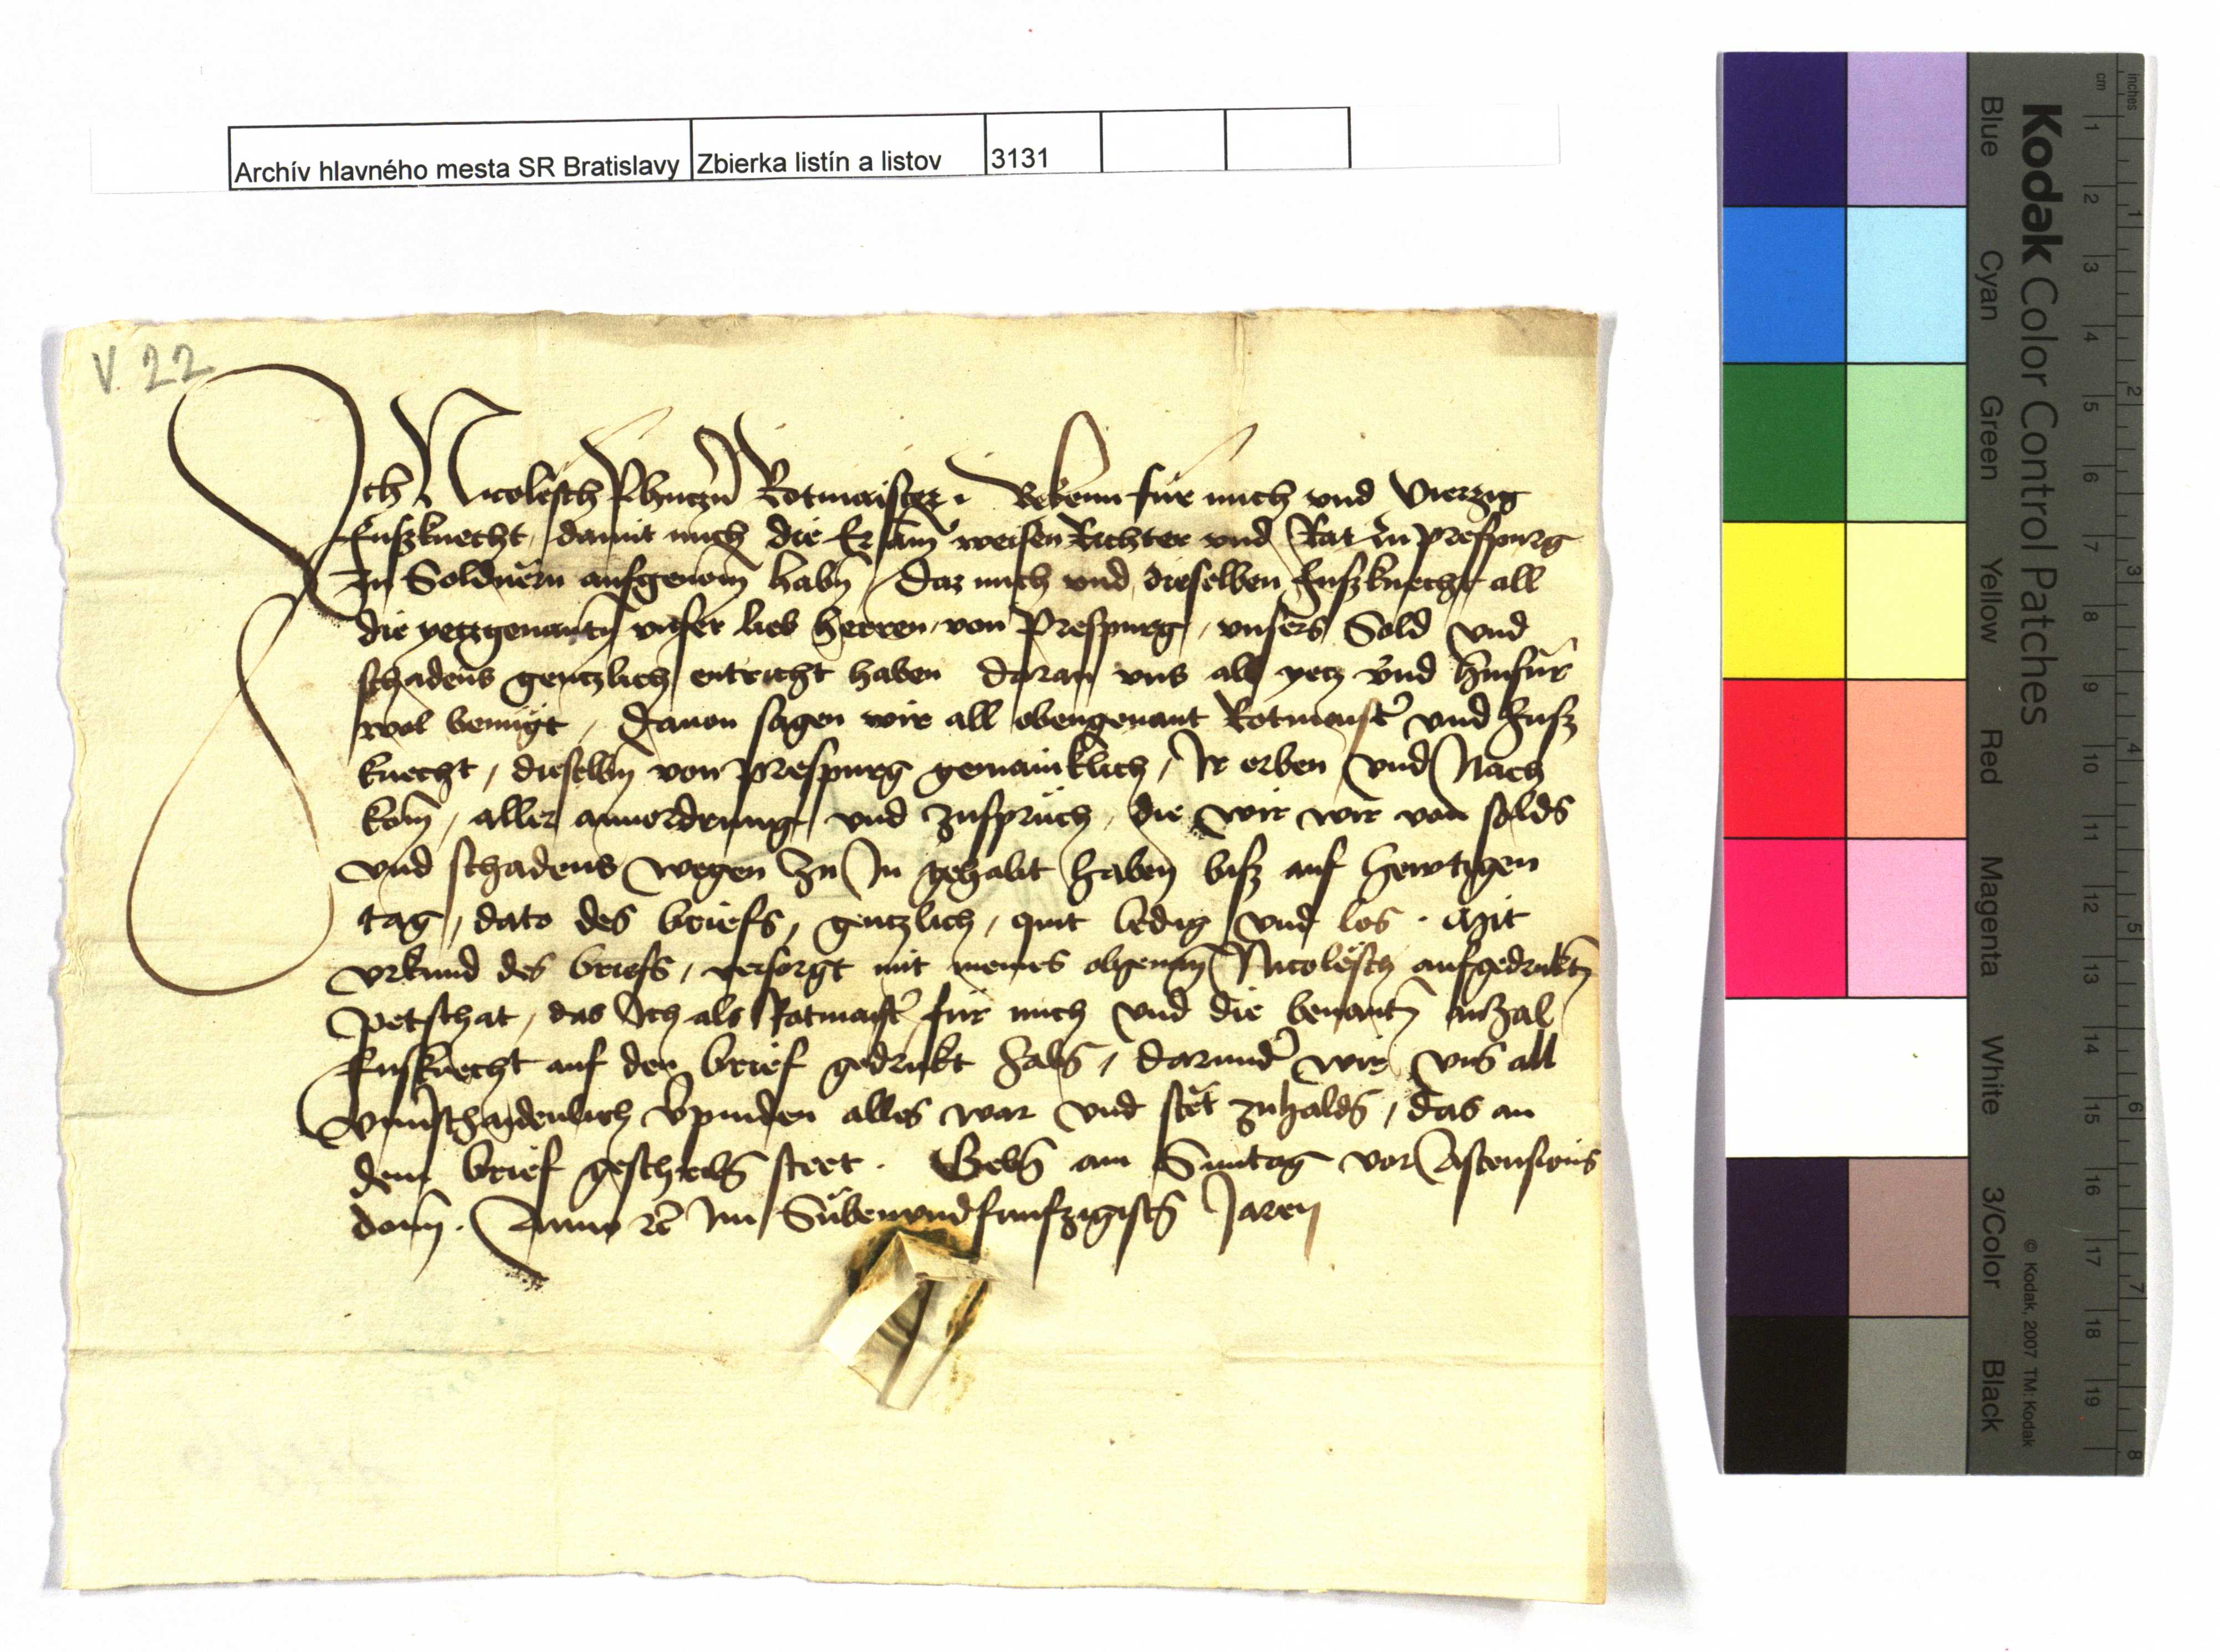 Archív hlavného mesta SR Bratislavy Zbierka listín a listov 3131
V. 22
Ich Nicolesch Rotmaister. Bekenn für mich und Vierzig
fuszknecht, damit mich die Ersam̄ weisen Richter und Rat zu prespurg
In Soldnern aufgenom̄ habn̄, Daz mich und dieselben fuszknecht all
die yetzgenantn̄ unser lieb herren von Prespurg, unsers Sold und
schadens gentzlich entricht haben daran uns all yetz und hinfür
wol benugt, Dauon sagen wir all obengenant Rotmaist̉ und fusz
knecht, dieselbn̄ von prespurg gemainklich, Ir erben und Nach
kom̄, aller anuordrung und zuspruch, die wir wir von solds
und schadens wegen zu In gehabt haben bisz auf hewtigen
tag, dato des briefs, gentzlich, quit ledig und los. Mit
urkund des briefs, versorgt mit meines obgenan̄ Nicolesch aufgedruktn̄
petschat, das Ich als Rotmaist̉ für mich und die benantn̄ anzal
fusknecht auf den brief gedrukt habn̄, darund̉ wir uns all
unuerschaidenlich verpinden alles war und stët zuhaldn̄, das an
dem brief geschribn̄ steet. Gebn̄ am Suntag vor Ascensionis
domī. Anno ꝛc̄ Im Sübenundfunfzigistn̄ Jaren
Kodak Color Control Patches
Blue Cyan Green Yellow Red Magenta White 3/Color Black
© Kodak, 2007 TM: Kodak
cm 1 2 3 4 5 6 7 8 9 10 11 12 13 14 15 16 17 18 19
inches 1 2 3 4 5 6 7 8